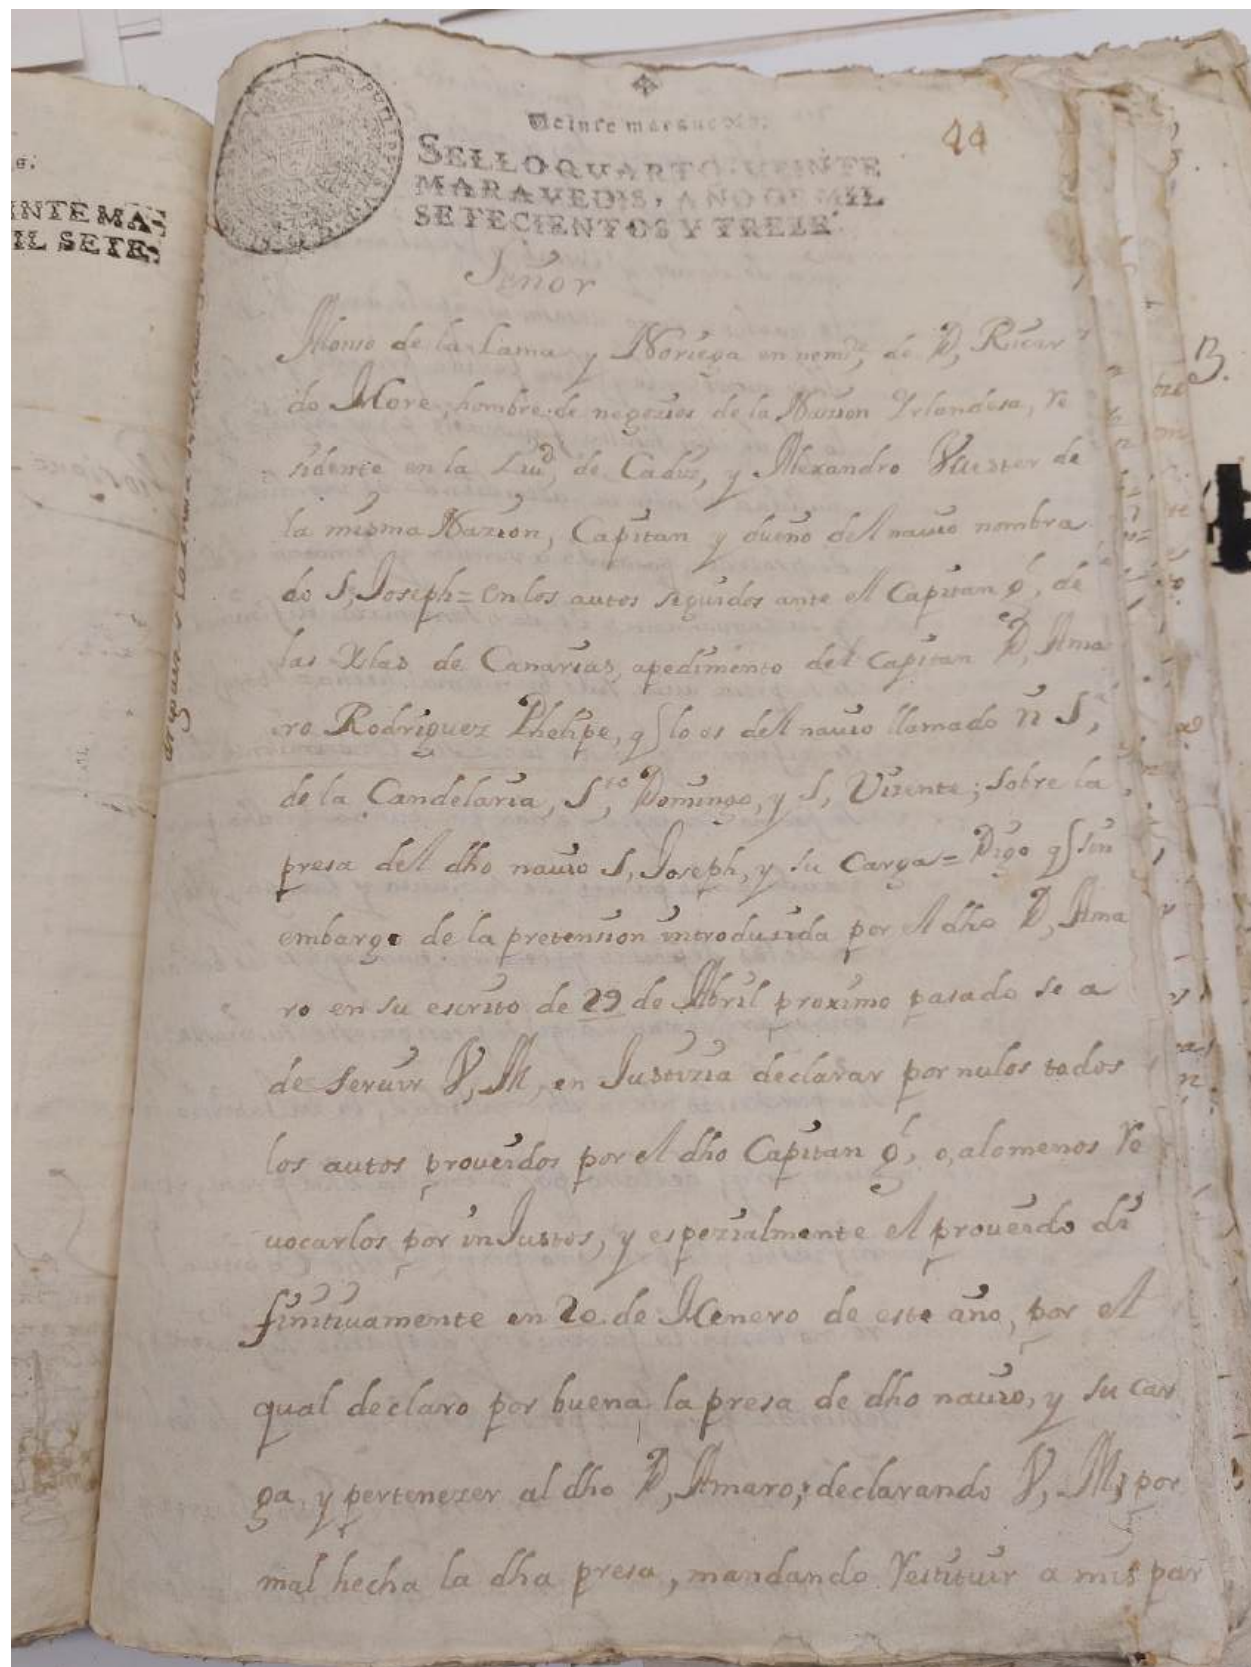 Veinte maravedis.
SELLO QVARTO, VEINTE
MARAVEDIS, AÑO DE MIL
SETECIENTOS Y TREZE.
44
Señor
Alonso de la Lama y Noriega en nomᵉ, de D, Ricar
do More, hombre de negozios de la Nazion Yrlandesa, re
sidente en la Ciuᵈ, de Cadiz, y Alexandro de
la misma Nazion, Capitan y dueño del nauio nombra
do S, Joseph = en los autos seguidos ante el Capitan gˡ, de
las Yslas de Canarias, apedimento del Capitan D, Ama
ro Rodriguez Phelipe, q lo es del nauio llamado N S,
de la Candelaria, Sᵗᵒ, Domingo, y S, Vizente; sobre la
presa del dho nauio S, Joseph, y su Carga = Digo q sin
embargo de la pretension introduzida por el dho D, Ama
ro en su escrito de 29 de Abril proximo pasado se a
de seruir V, M, en Justizia declarar por nulos todos
los autos proueidos por el dho Capitan gˡ, o, alomenos re
uocarlos por inJustos, y espezialmente el proueido di
finitiuamente en 20 de Henero de este año, por el
qual declaro por buena la presa de dho nauio, y su car
ga, y pertenezer al dho D, Amaro; declarando V, M, por
mal hecha la dha presa, mandando restituir a mis par
INTE MA=
IL SETE=
B.